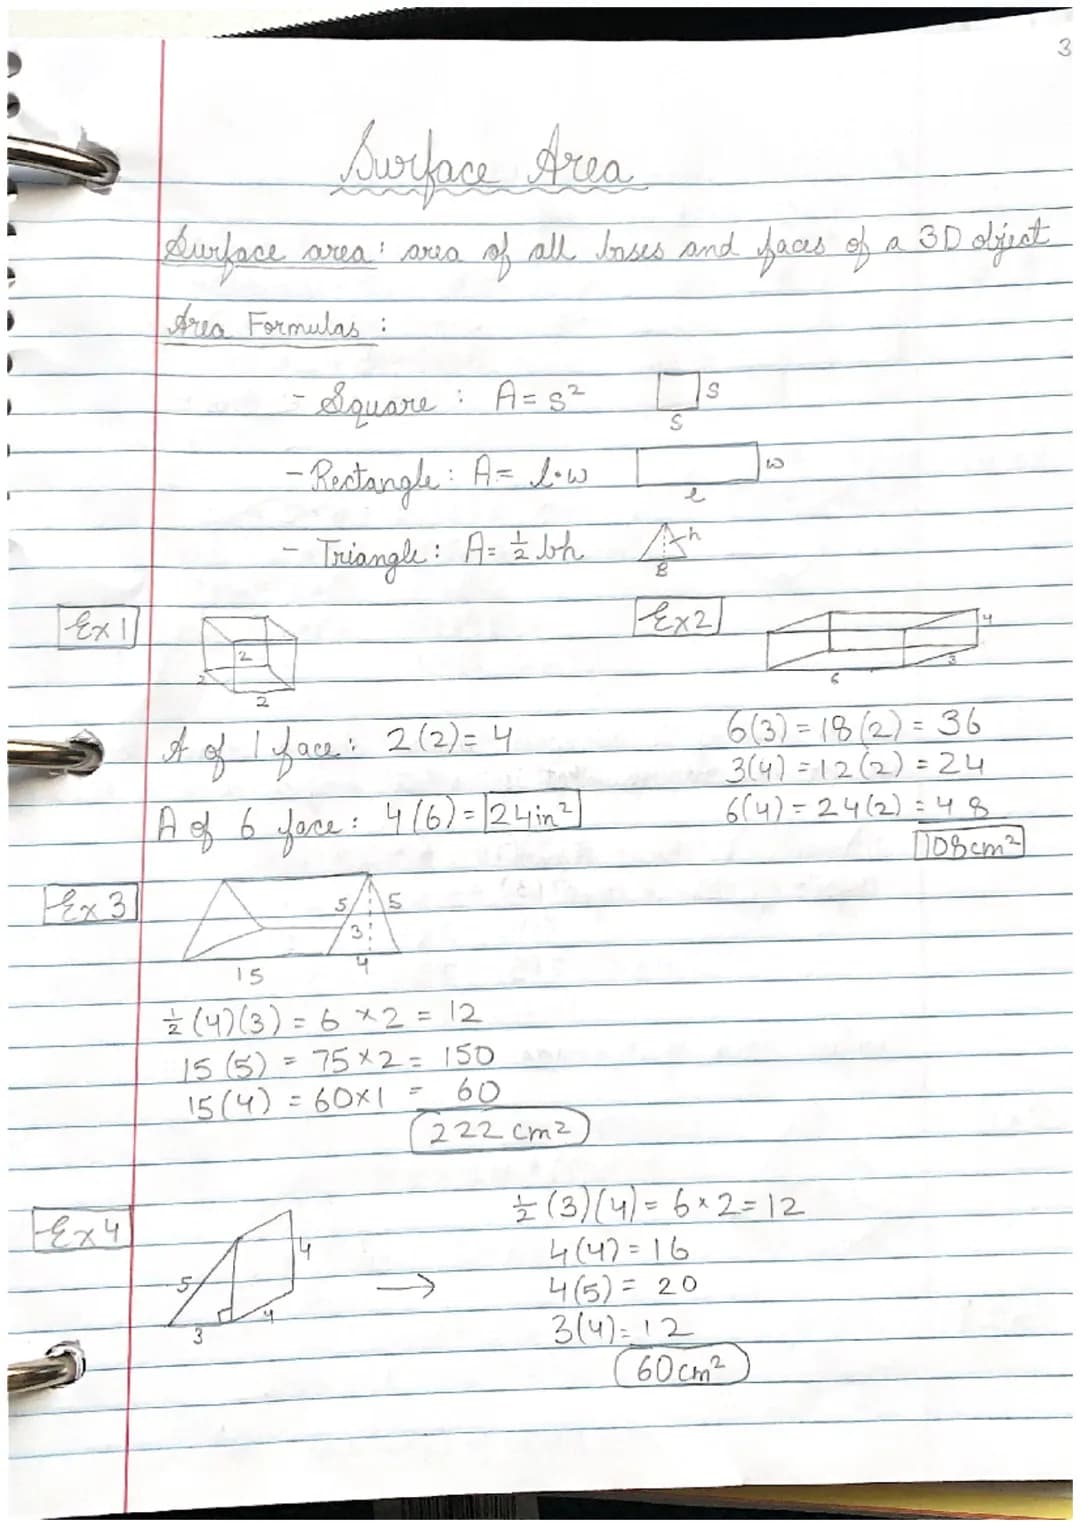 3
Surface Area
Surface area: area of all bases and faces of a 3D object
Area Formulas:
- Square: A = s² s
s
- Rectangle: A = l·w w
l
- Triangle: A = ½ bh h
B
Ex 1
2
2
2
A of 1 face: 2(2) = 4
A of 6 face: 4(6) = 24in²
Ex2
4
3
6
6(3) = 18(2) = 36
3(4) = 12(2) = 24
6(4) = 24(2) = 48
108cm²
Ex 3
5 5
3
15 4
½(4)(3) = 6 × 2 = 12
15(5) = 75 × 2 = 150
15(4) = 60×1 = 60
222 cm²
Ex 4
4
5
4
3
→
½(3)(4) = 6 × 2 = 12
4(4) = 16
4(5) = 20
3(4) = 12
60cm²